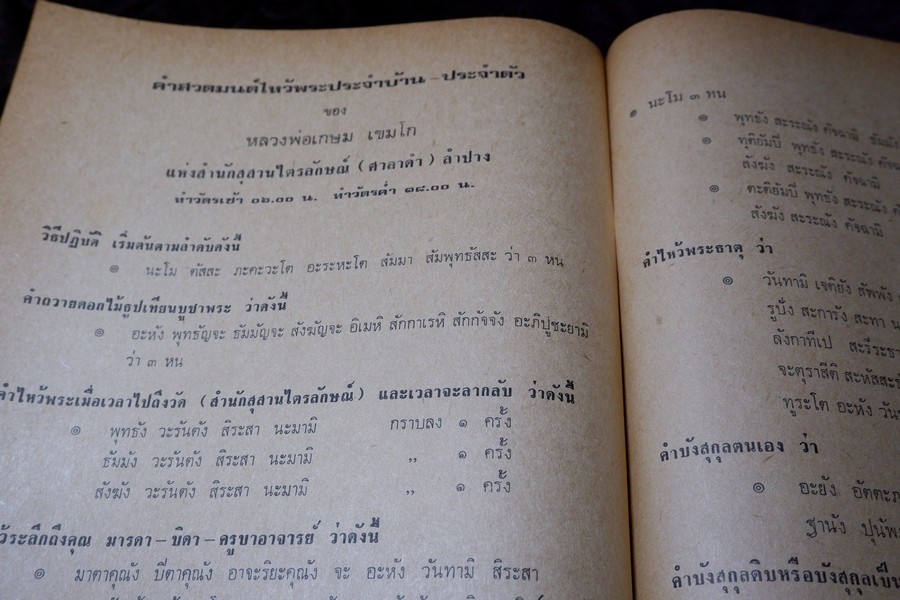 คำสวดมนต์ไหว้พระประจำบ้าน – ประจำตัว
ของ
หลวงพ่อเกษม เขมโก
แห่งสำนักสุสานไตรลักษณ์ ( ศาลาดำ ) ลำปาง
ทำวัตรเช้า ๐๖.๐๐ น. ทำวัตรค่ำ ๑๘.๐๐ น.
วิธีปฏิบัติ เริ่มต้นตามลำดับดังนี้
๏ นะโม ตัสสะ ภะคะวะโต อะระหะโต สัมมา สัมพุทธัสสะ ว่า ๓ หน
คำถวายดอกไม้ธูปเทียนบูชาพระ ว่าดังนี้
๏ อะหัง พุทธัญจะ ธัมมัญจะ สังฆัญจะ อิเมหิ สักกาเรหิ สักกัจจัง อะภิปูชะยามิ
ว่า ๓ หน
คำไหว้พระเมื่อเวลาไปถึงวัด (สำนักสุสานไตรลักษณ์) และเวลาจะลากลับ ว่าดังนี้
๏ พุทธัง วะรันตัง สิระสา นะมามิ กราบลง ๑ ครั้ง
ธัมมัง วะรันตัง สิระสา นะมามิ ,, ๑ ครั้ง
สังฆัง วะรันตัง สิระสา นะมามิ ,, ๑ ครั้ง
ระลึกถึงคุณ มารดา – บิดา – ครูบาอาจารย์ ว่าดังนี้
๏ มาตาคุณัง ปิตาคุณัง อาจะริยะคุณัง จะ อะหัง วันทามิ สิระสา
๏ นะโม ๓ หน
๏ พุทธัง สะระณัง คัจฉามิ
๏ ทุติยัมปิ พุทธัง สะระณัง
สังฆัง สะระณัง คัจฉามิ
๏ ตะติยัมปิ พุทธัง สะระณัง
สังฆัง สะระณัง คัจฉามิ
คำไหว้พระธาตุ ว่า
๏ วันทามิ เจติยัง สัพพัง
รูปัง สะการัง สะทา
ลังกาทีเป
จะตุราสีติ
ทูระโต อะหัง
คำบังสุกุลตนเอง ว่า
๏ อะยัง อัตตะ
ฐานัง
คำบังสุกุลดิบหรือบังสุกุลเป็น